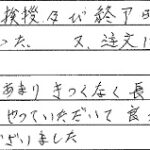 挨拶及び終了日
った。 又、注文に
あまりきつくなく長
やっていただいて良
ございました